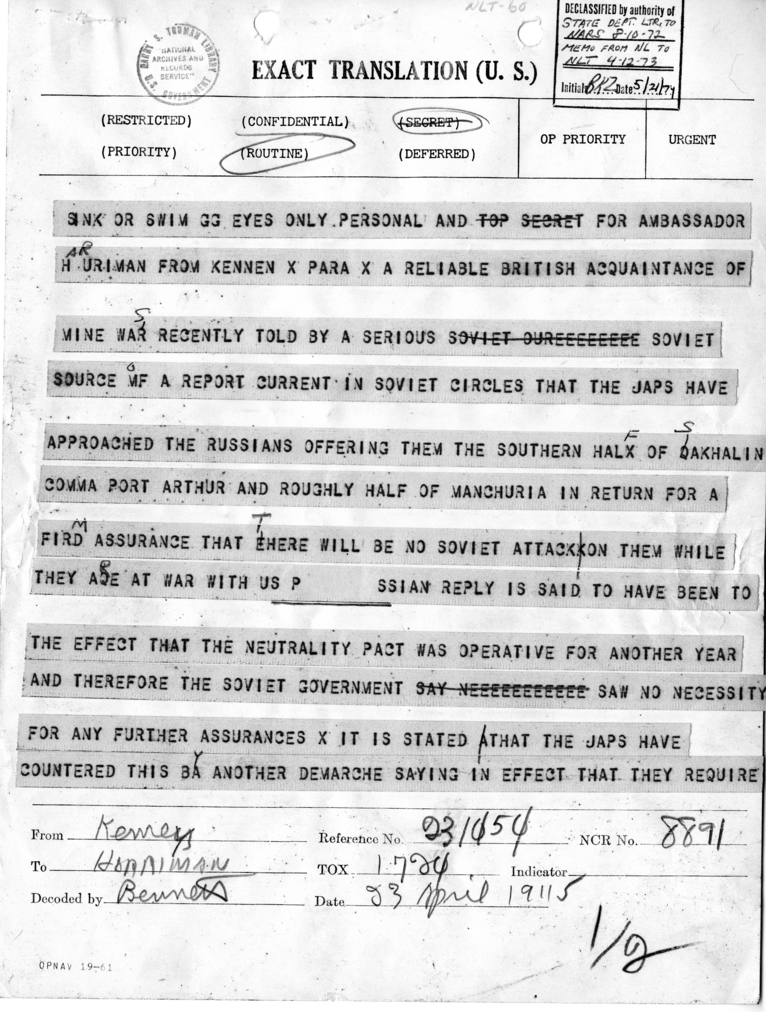 NLT-60
DECLASSIFIED by authority of
STATE DEPT. LTR. TO
NARS 8-10-72
MEMO FROM NL TO
NLT 4-12-73
Initial Date 5/21/74
HARRY S. TRUMAN LIBRARY
"NATIONAL
ARCHIVES AND
RECORDS
SERVICE"
U.S. GOVERNMENT
EXACT TRANSLATION (U. S.)
(RESTRICTED) (CONFIDENTIAL) (SECRET) OP PRIORITY URGENT
(PRIORITY) (ROUTINE) (DEFERRED)
SINK OR SWIM GG EYES ONLY PERSONAL AND TOP SECRET FOR AMBASSADOR
AR
H URIMAN FROM KENNEN X PARA X A RELIABLE BRITISH ACQUAINTANCE OF
S
MINE WAR RECENTLY TOLD BY A SERIOUS SOVIET OUREEEEEEEE SOVIET
O
SOURCE MF A REPORT CURRENT IN SOVIET CIRCLES THAT THE JAPS HAVE
F S
APPROACHED THE RUSSIANS OFFERING THEM THE SOUTHERN HALX OF QAKHALIN
COMMA PORT ARTHUR AND ROUGHLY HALF OF MANCHURIA IN RETURN FOR A
M T
FIRD ASSURANCE THAT EHERE WILL BE NO SOVIET ATTACKKON THEM WHILE
R
THEY ASE AT WAR WITH US P SSIAN REPLY IS SAID TO HAVE BEEN TO
THE EFFECT THAT THE NEUTRALITY PACT WAS OPERATIVE FOR ANOTHER YEAR
AND THEREFORE THE SOVIET GOVERNMENT SAY NEEEEEEEEEEE SAW NO NECESSITY
FOR ANY FURTHER ASSURANCES X IT IS STATED ATHAT THE JAPS HAVE
Y
COUNTERED THIS BA ANOTHER DEMARCHE SAYING IN EFFECT THAT THEY REQUIRE
From Reference No. 231454 NCR No. 8891
To HARRIMAN TOX 1724 Indicator
Decoded by Bennett Date 23 April 1945
OPNAV 19-61
1/2